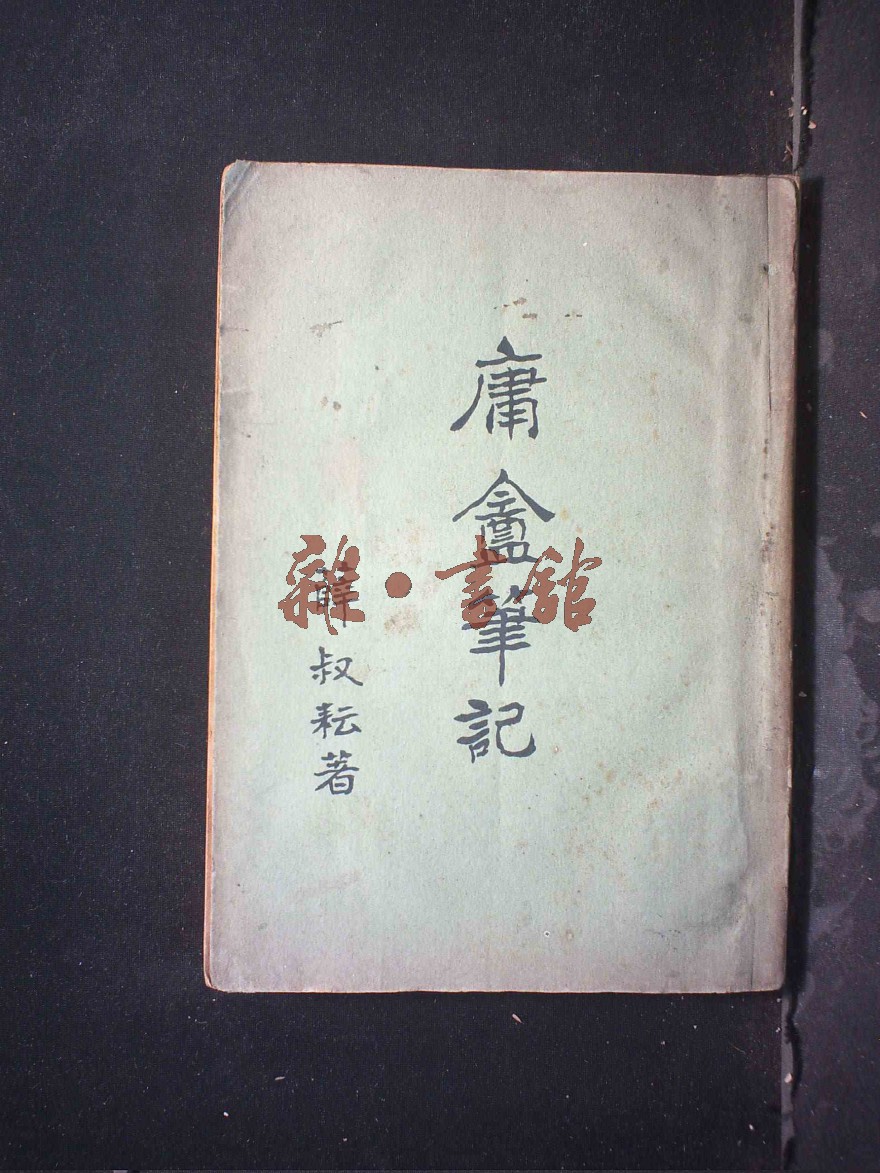 庸盦筆記
薛叔耘著
雜•書館